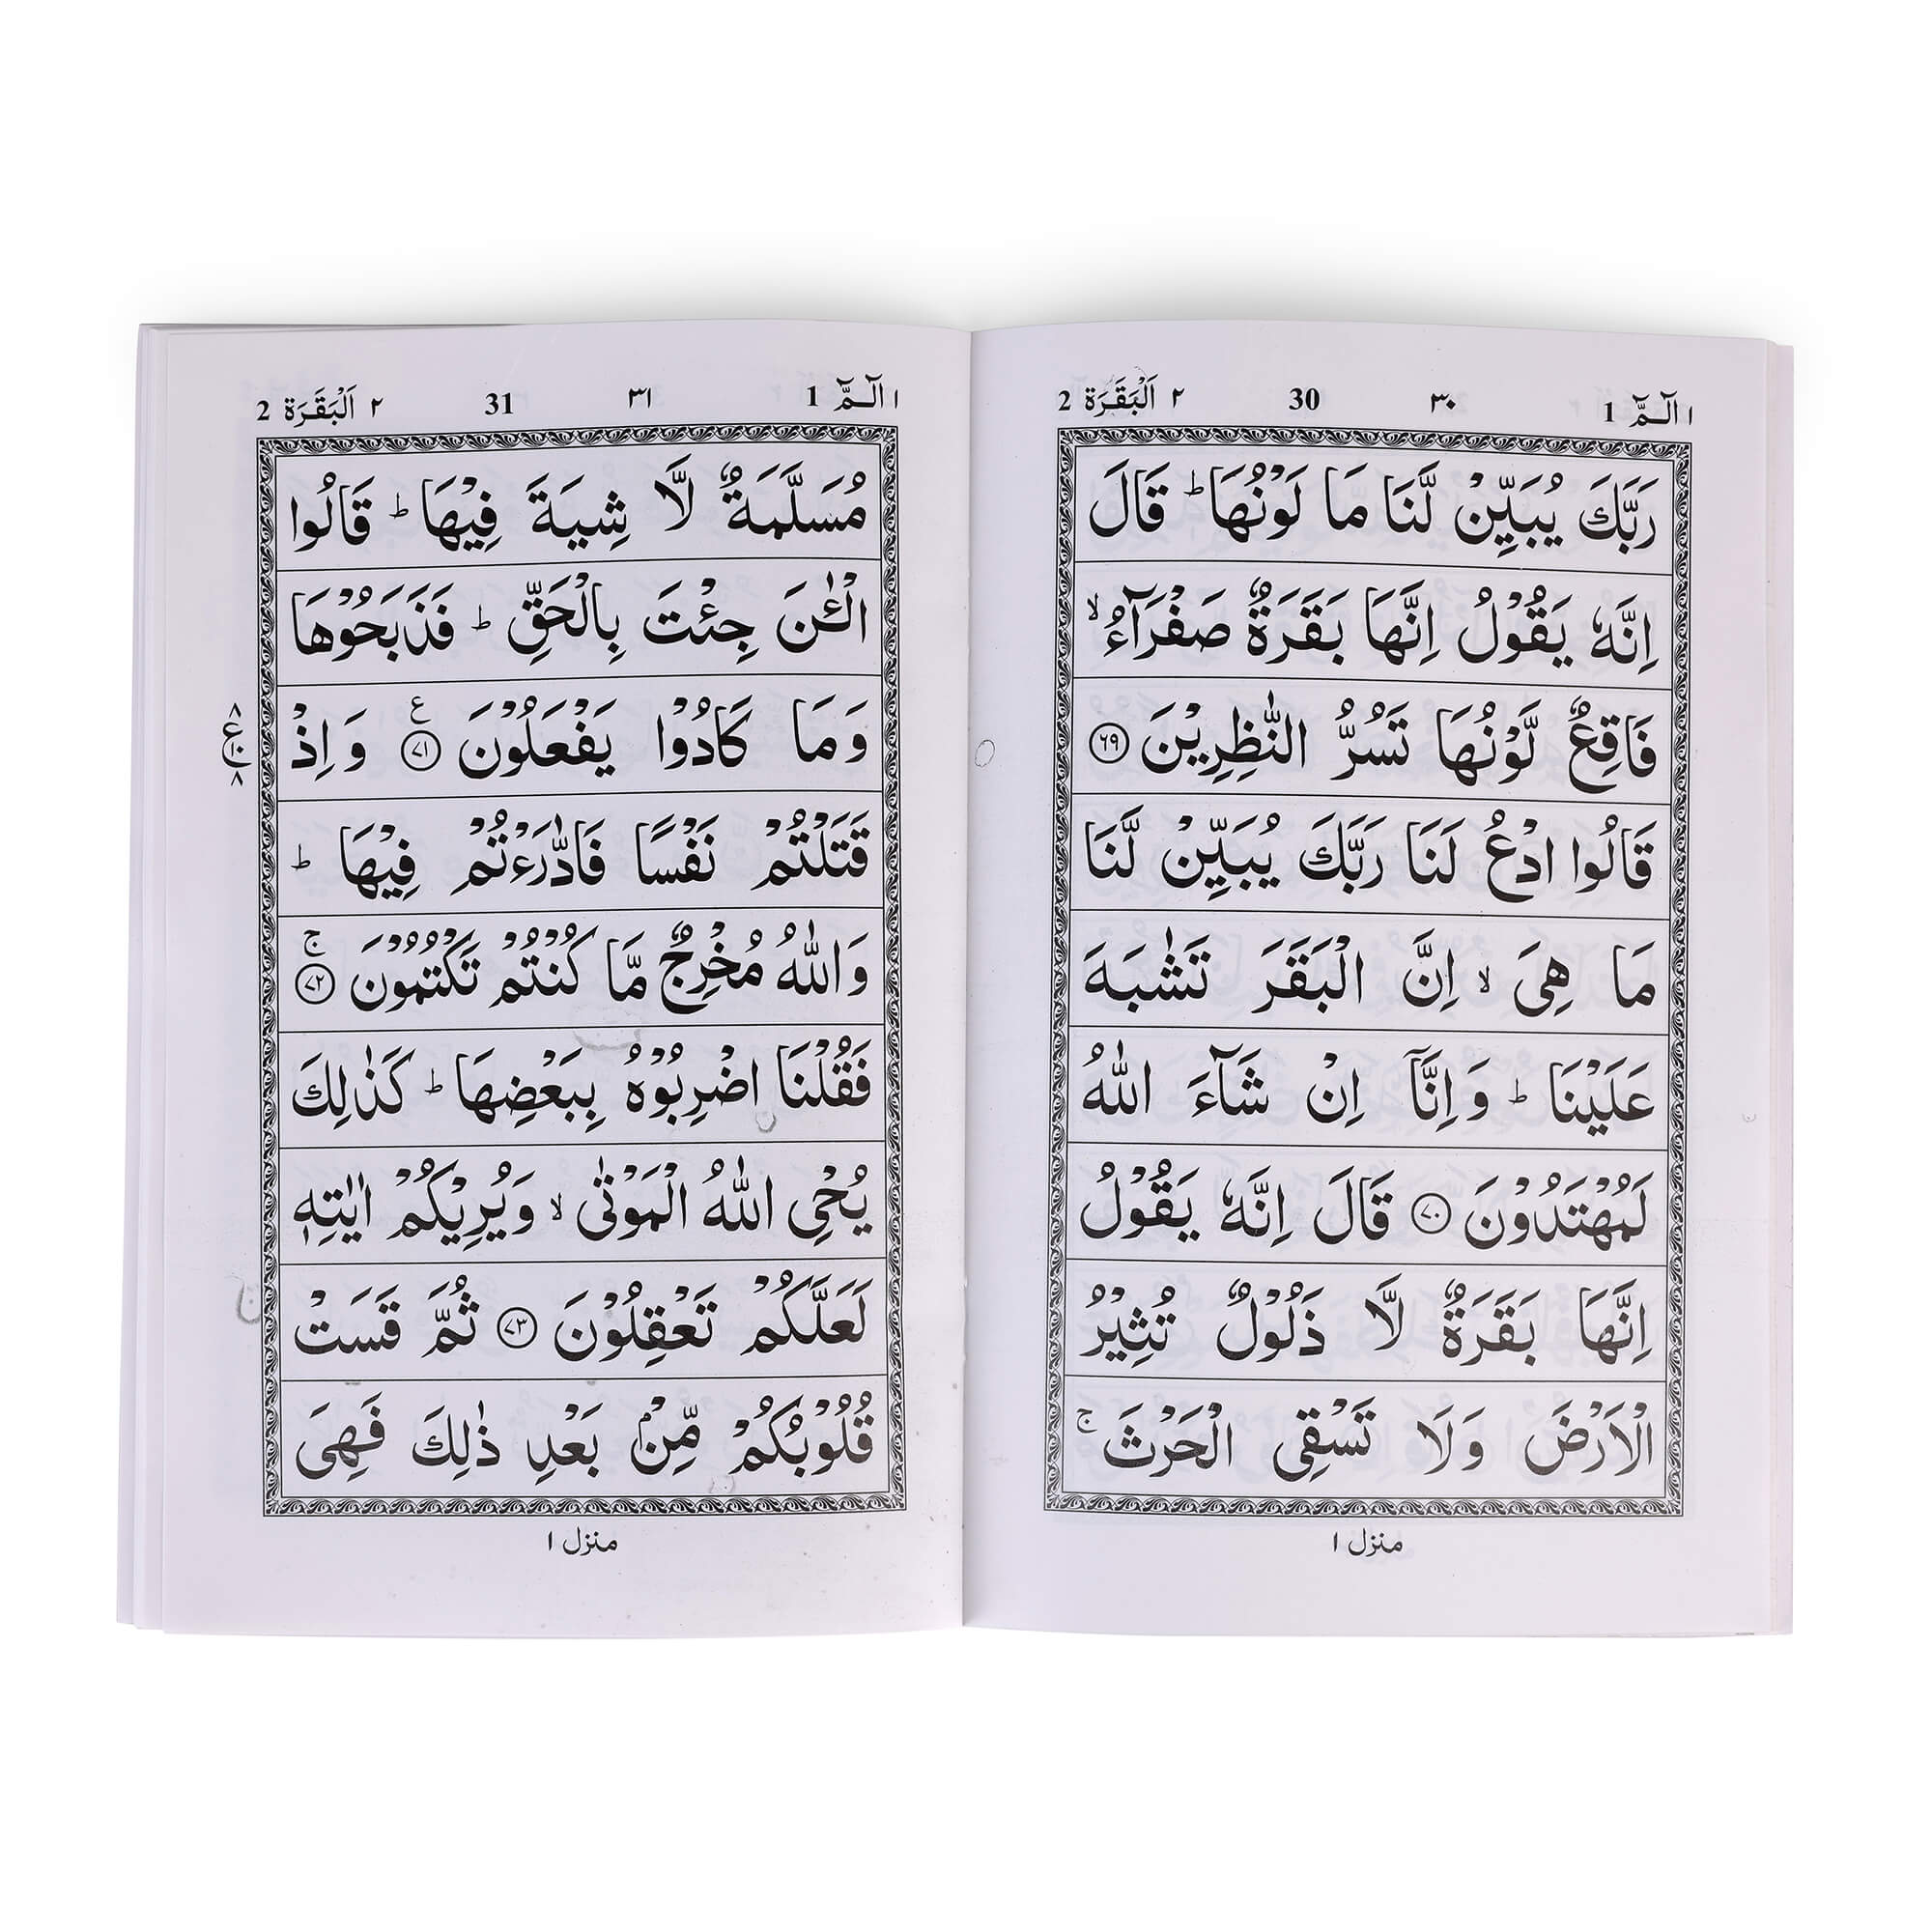 ١ الٓـمّٓ 1 ٣٠ 30 ٢ اَلْبَقَرَة 2
رَبَّكَ يُبَيِّنْ لَّنَا مَا لَوْنُهَا ؕ قَالَ
اِنَّهٗ يَقُوْلُ اِنَّهَا بَقَرَةٌ صَفْرَآءُ ۙ
فَاقِعٌ لَّوْنُهَا تَسُرُّ النّٰظِرِيْنَ ﴿٦٩﴾
قَالُوا ادْعُ لَنَا رَبَّكَ يُبَيِّنْ لَّنَا
مَا هِيَ ۙ اِنَّ الْبَقَرَ تَشٰبَهَ
عَلَيْنَا ؕ وَاِنَّآ اِنْ شَآءَ اللّٰهُ
لَمُهْتَدُوْنَ ﴿٧٠﴾ قَالَ اِنَّهٗ يَقُوْلُ
اِنَّهَا بَقَرَةٌ لَّا ذَلُوْلٌ تُثِيْرُ
الْاَرْضَ وَلَا تَسْقِى الْحَرْثَ ۚ
منزل ١
١ الٓـمّٓ 1 ٣١ 31 ٢ اَلْبَقَرَة 2
مُسَلَّمَةٌ لَّا شِيَةَ فِيْهَا ؕ قَالُوا
الْـٰٔنَ جِئْتَ بِالْحَقِّ ؕ فَذَبَحُوْهَا
وَمَا كَادُوْا يَفْعَلُوْنَ ﴿٧١﴾ ع وَاِذْ
٨ ع ١٠ ٨
قَتَلْتُمْ نَفْسًا فَادّٰرَءْتُمْ فِيْهَا ؕ
وَاللّٰهُ مُخْرِجٌ مَّا كُنْتُمْ تَكْتُمُوْنَ ۚ ﴿٧٢﴾
فَقُلْنَا اضْرِبُوْهُ بِبَعْضِهَا ؕ كَذٰلِكَ
يُحْىِ اللّٰهُ الْمَوْتٰى ۙ وَيُرِيْكُمْ اٰيٰتِهٖ
لَعَلَّكُمْ تَعْقِلُوْنَ ﴿٧٣﴾ ثُمَّ قَسَتْ
قُلُوْبُكُمْ مِّنْۢ بَعْدِ ذٰلِكَ فَهِىَ
منزل ١